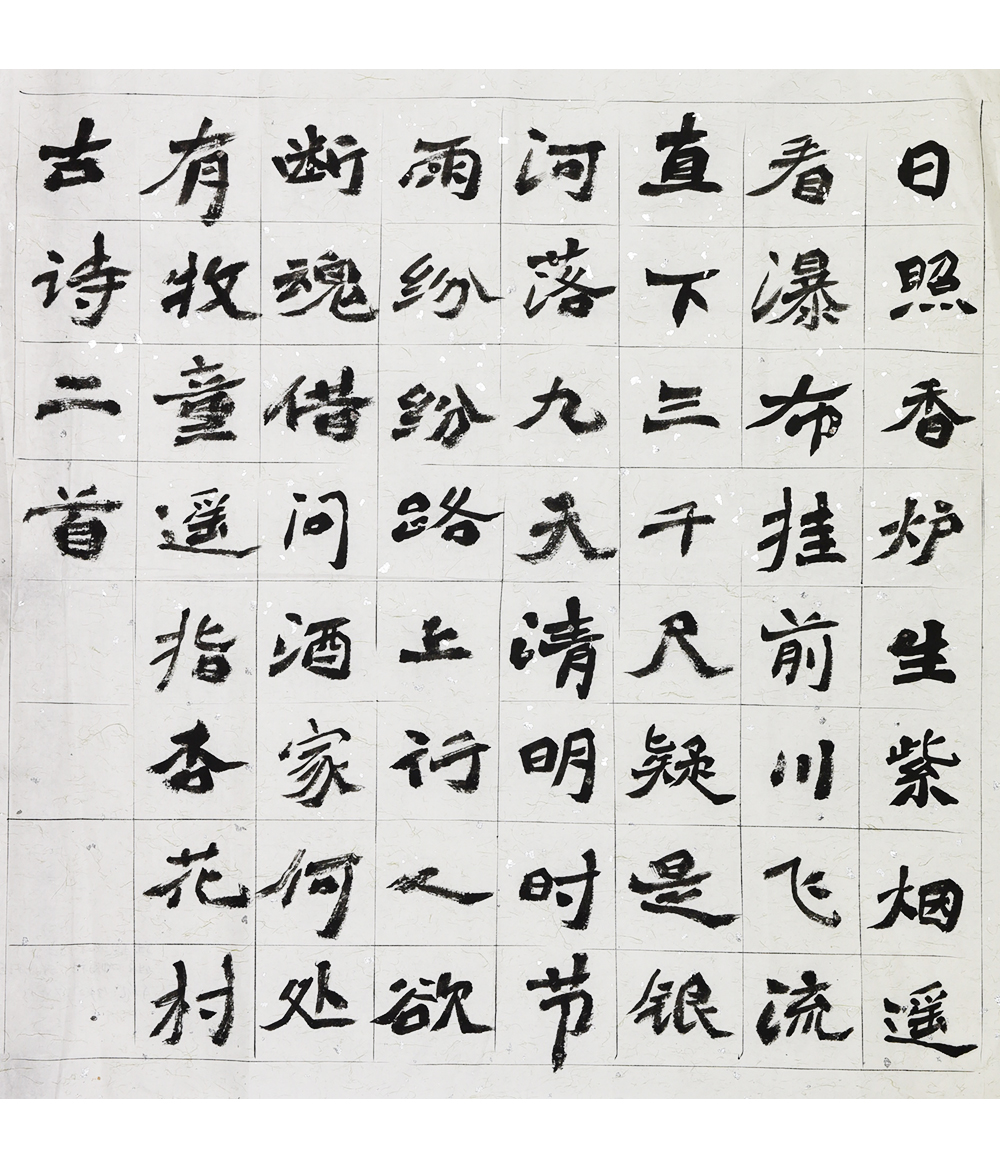 日照香炉生紫烟遥
看瀑布挂前川飞流
直下三千尺疑是银
河落九天清明时节
雨纷纷路上行人欲
断魂借问酒家何处
有牧童遥指杏花村
古诗二首